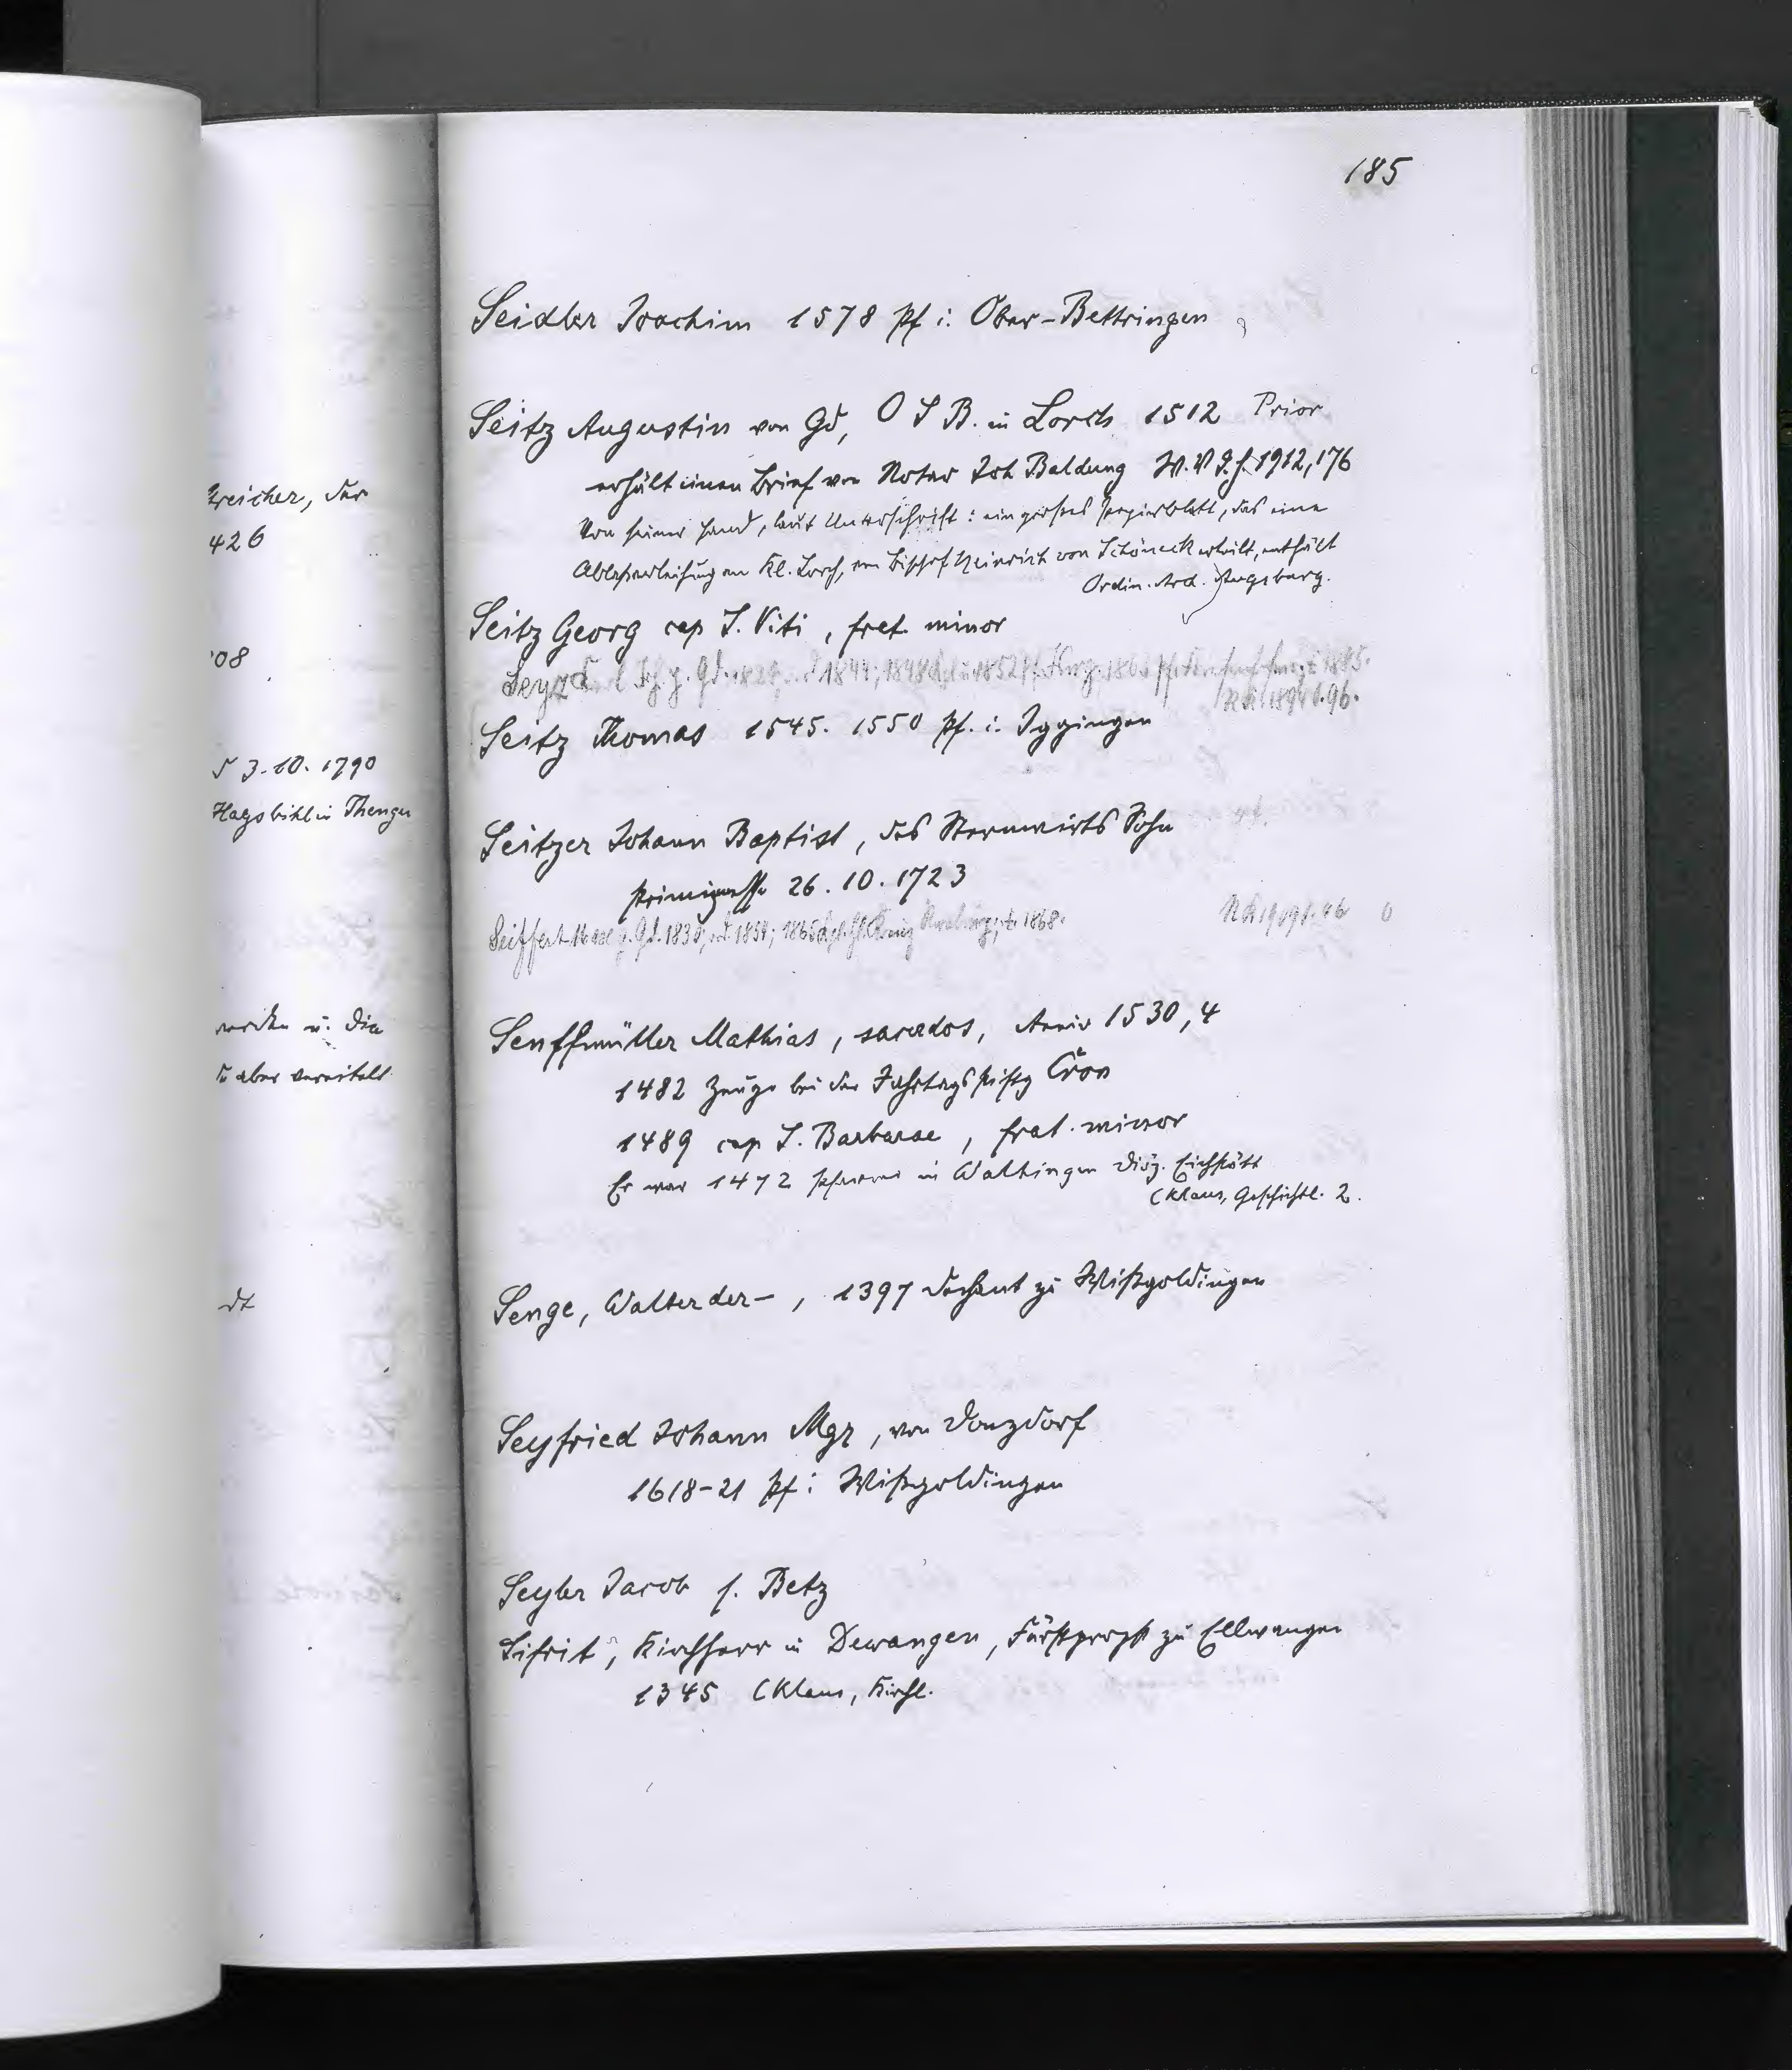 185
Seidler Joachim 1578 Pf i. Ober-Bettringen
Seitz Augustin von Gd, O S B. in Lorch 1512 Prior
erhält einen Brief von Notar Joh Baldung W.V.J.H. 1912, 176
Von seiner Hand, laut Unterschrift: ein großes Papierblatt, das eine
Ablaßverleihung an Kl. Lorch, von Bischof Heinrich von Schöneck erteilt, enthält
Ordin. Arch. Augsburg.
Seitz Georg cap S. Viti, frat. minor
1852
Seitz Thomas 1545. 1550 Pf. i. Iggingen
Seitzer Johann Baptist, des Sternwirts Sohn
Primizmesse 26. 10. 1723
Seiffert g. Gd. 1830, 1854; 1865 1868.
Senffmüller Mathias, sacerdos, Anniv 1530, 4
1482 Zeuge bei der Jahrtagsstiftg Cron
1489 cap S. Barbarae, frat. minor
Er war 1472 Pfarrer in Waltingen Diöz. Eichstätt
(Klaus, Geschichtl. 2.
Senge, Walter der -, 1397 Dechant zu Wißgoldingen
Seyfried Johann Mgr, von Donzdorf
1618-21 Pf i. Wißgoldingen
Seyler Jacob s. Betz
Sifrit, Kirchherr in Dewangen, Fürstpropst zu Ellwangen
1345 (Klaus, Kirchl.
426
08
3. 10. 1790
u. die
aber vereitelt